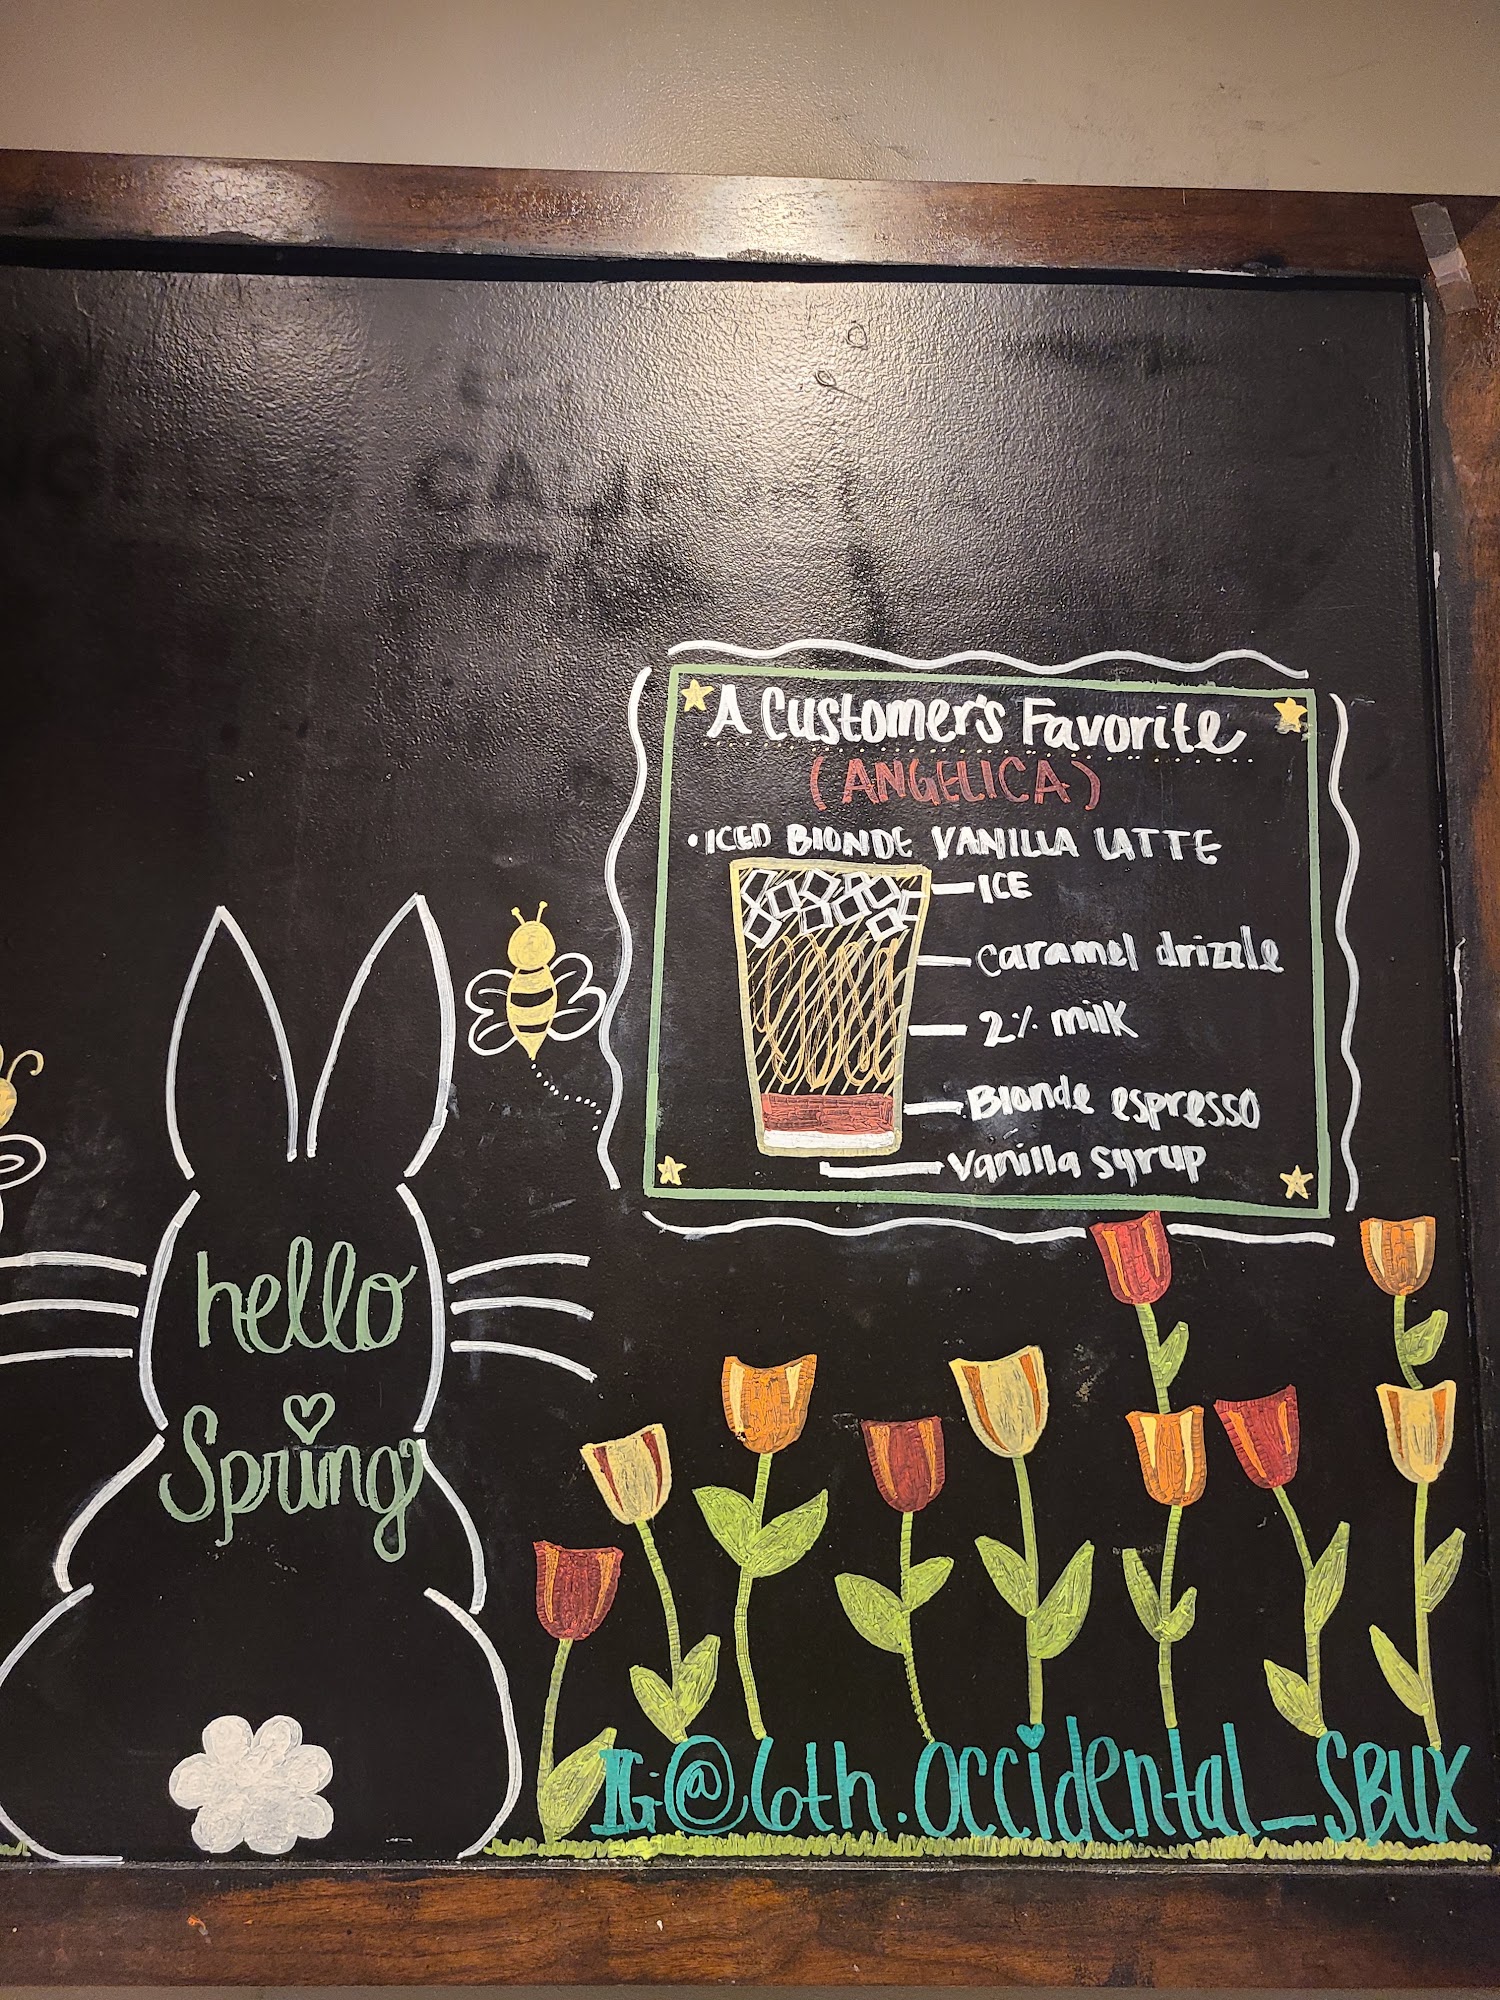 A Customer's Favorite
(ANGELICA)
• ICED BlONDE VANILLA LATTE
ICE
caramel drizzle
2% milk
Blonde espresso
Vanilla syrup
hello
Spring
IG: @6th.Occidental_SBUX